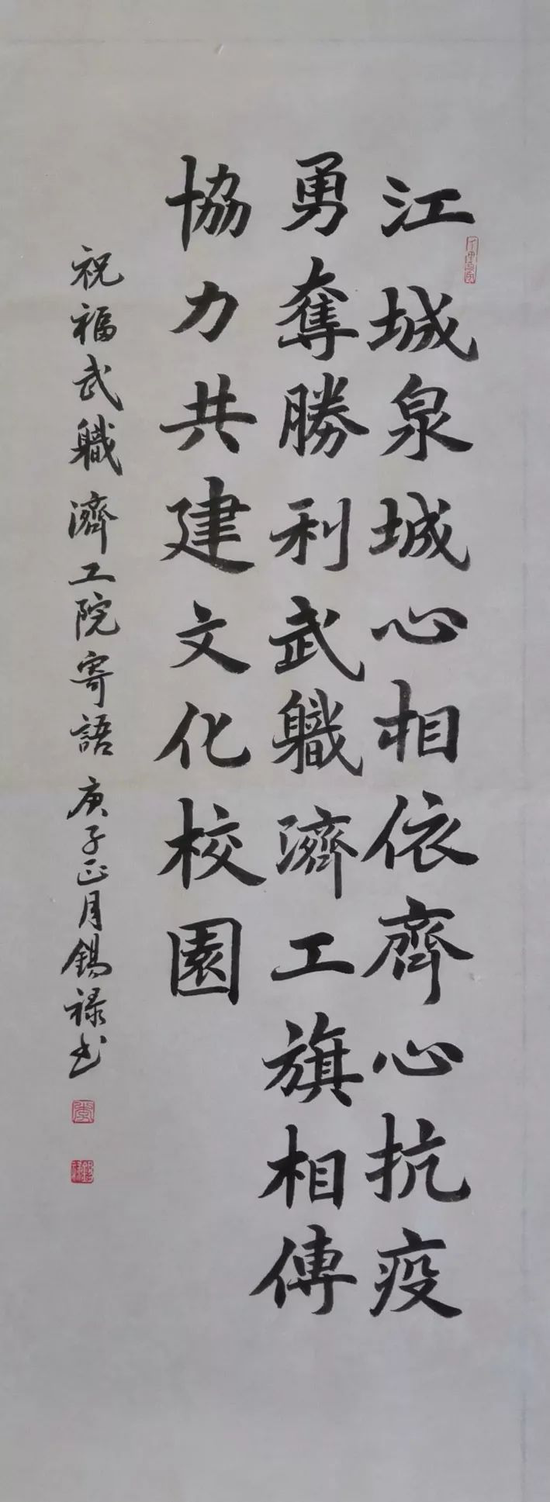 江城泉城心相依齊心抗疫
勇奪勝利武軄濟工旗相傳
協力共建文化校園
祝福武軄濟工院寄語 庚子正月錫祿书